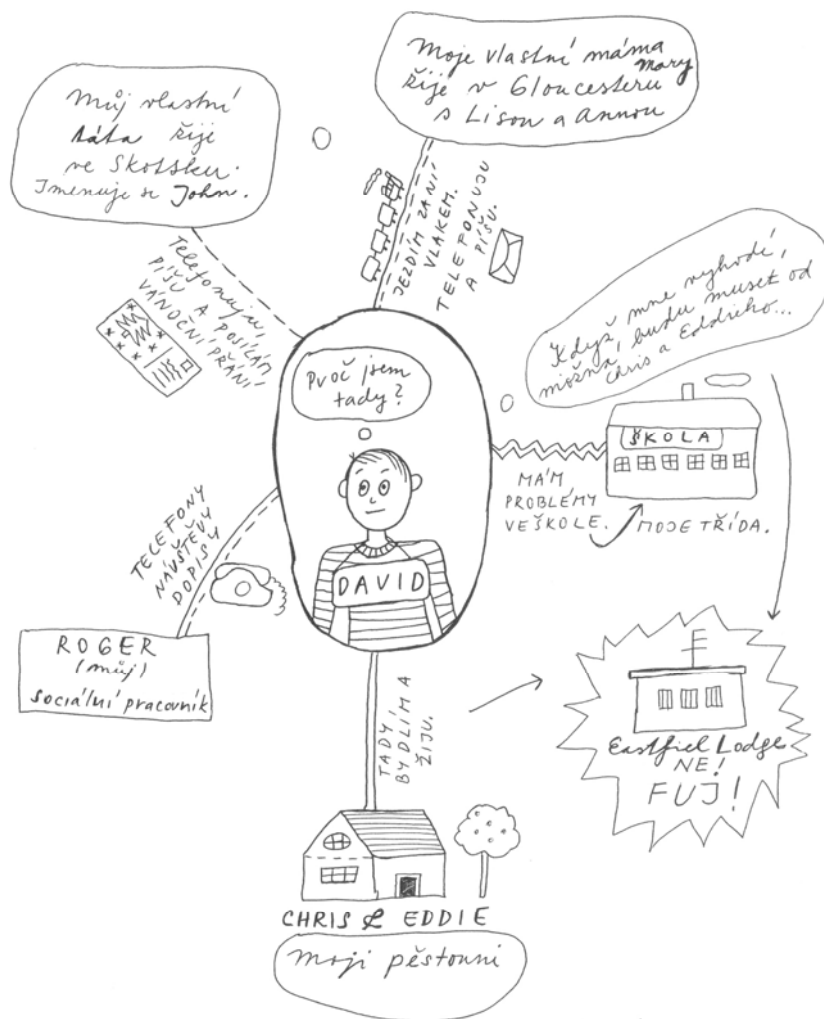 Můj vlastní
táta žije
ve Skotsku.
Jmenuje se John.
Moje vlastní máma
Mary
žije v Gloucesteru
s Lisou a Annou
TELEFONUJU,
PÍŠU A POSÍLÁM
VÁNOČNÍ PŘÁNÍ
JEZDÍM ZA NÍ
VLAKEM.
TELEFONUJU
A PÍŠU.
Když mne vyhodí,
možná, budu muset od
Chris a Eddieho...
Proč jsem
tady?
DAVID
ŠKOLA
MÁM
PROBLÉMY
VE ŠKOLE.
MOJE TŘÍDA.
TELEFONY
NÁVŠTĚVY
DOPISY
ROGER
(můj)
sociální pracovník
TADY
BYDLÍM A
ŽIJU.
Eastfiel Lodge
NE!
FUJ!
CHRIS & EDDIE
moji pěstouni